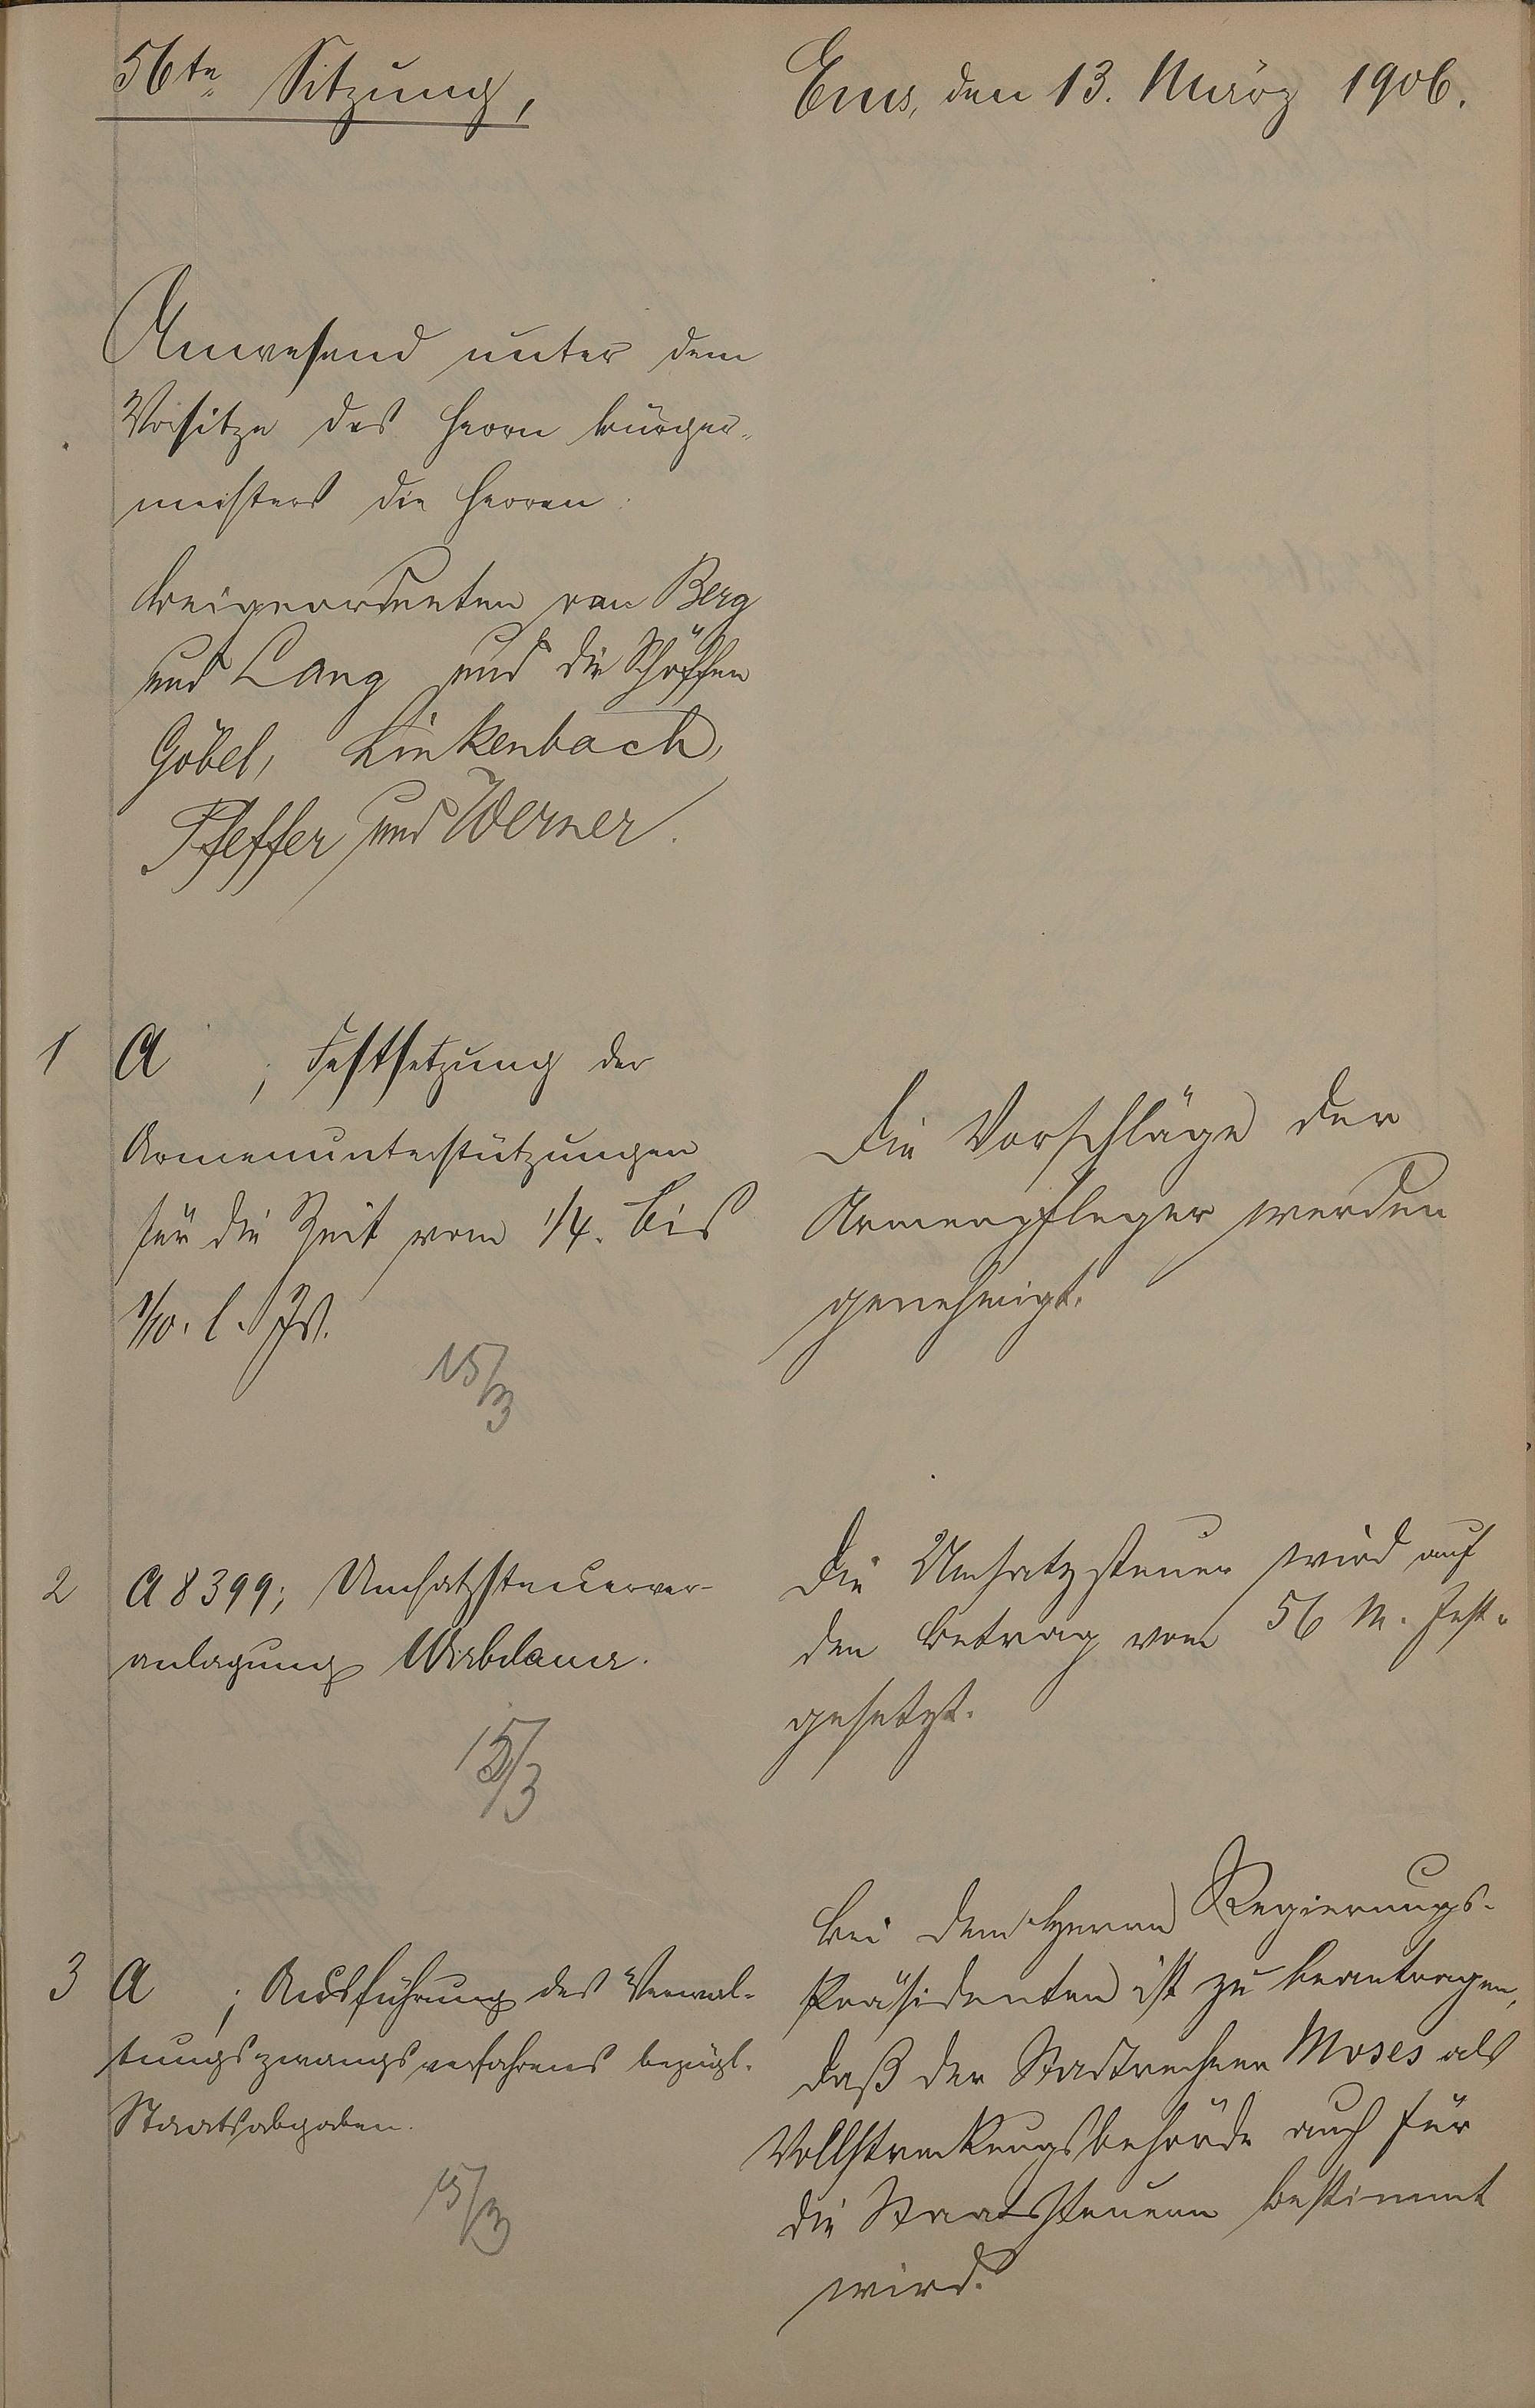 56te Sitzung,
Ems, den 13. März 1906.
Anwesend unter dem
Vorsitze des Herrn Bürger-
meisters die Herren:
Beigeordneten van Berg
und Lang und die Schöffen
Göbel, Linkenbach,
Pfeffer und Werner.
1 A ; Festsetzung der
Armenunterstützungen
für die Zeit vom 1/4. bis
1/10. l. Js.
15/3
Die Vorschläge der
Armenpfleger werden
genehmigt.
2 A 8399; Umsatzsteuerver-
anlagung Wirbelauer.
15/3
Die Umsatzsteuer wird auf
den Betrag von 56 M. fest-
gesetzt.
3 A ; Ausführung des Verwal-
tungszwangsverfahrens bezügl.
Staatsabgaben.
15/3
Bei dem Herrn Regierungs-
Präsidenten ist zu beantragen,
daß der Stadtrechner Moses als
Vollstreckungsbehörde auch für
die Staatssteuern bestimmt
wird.